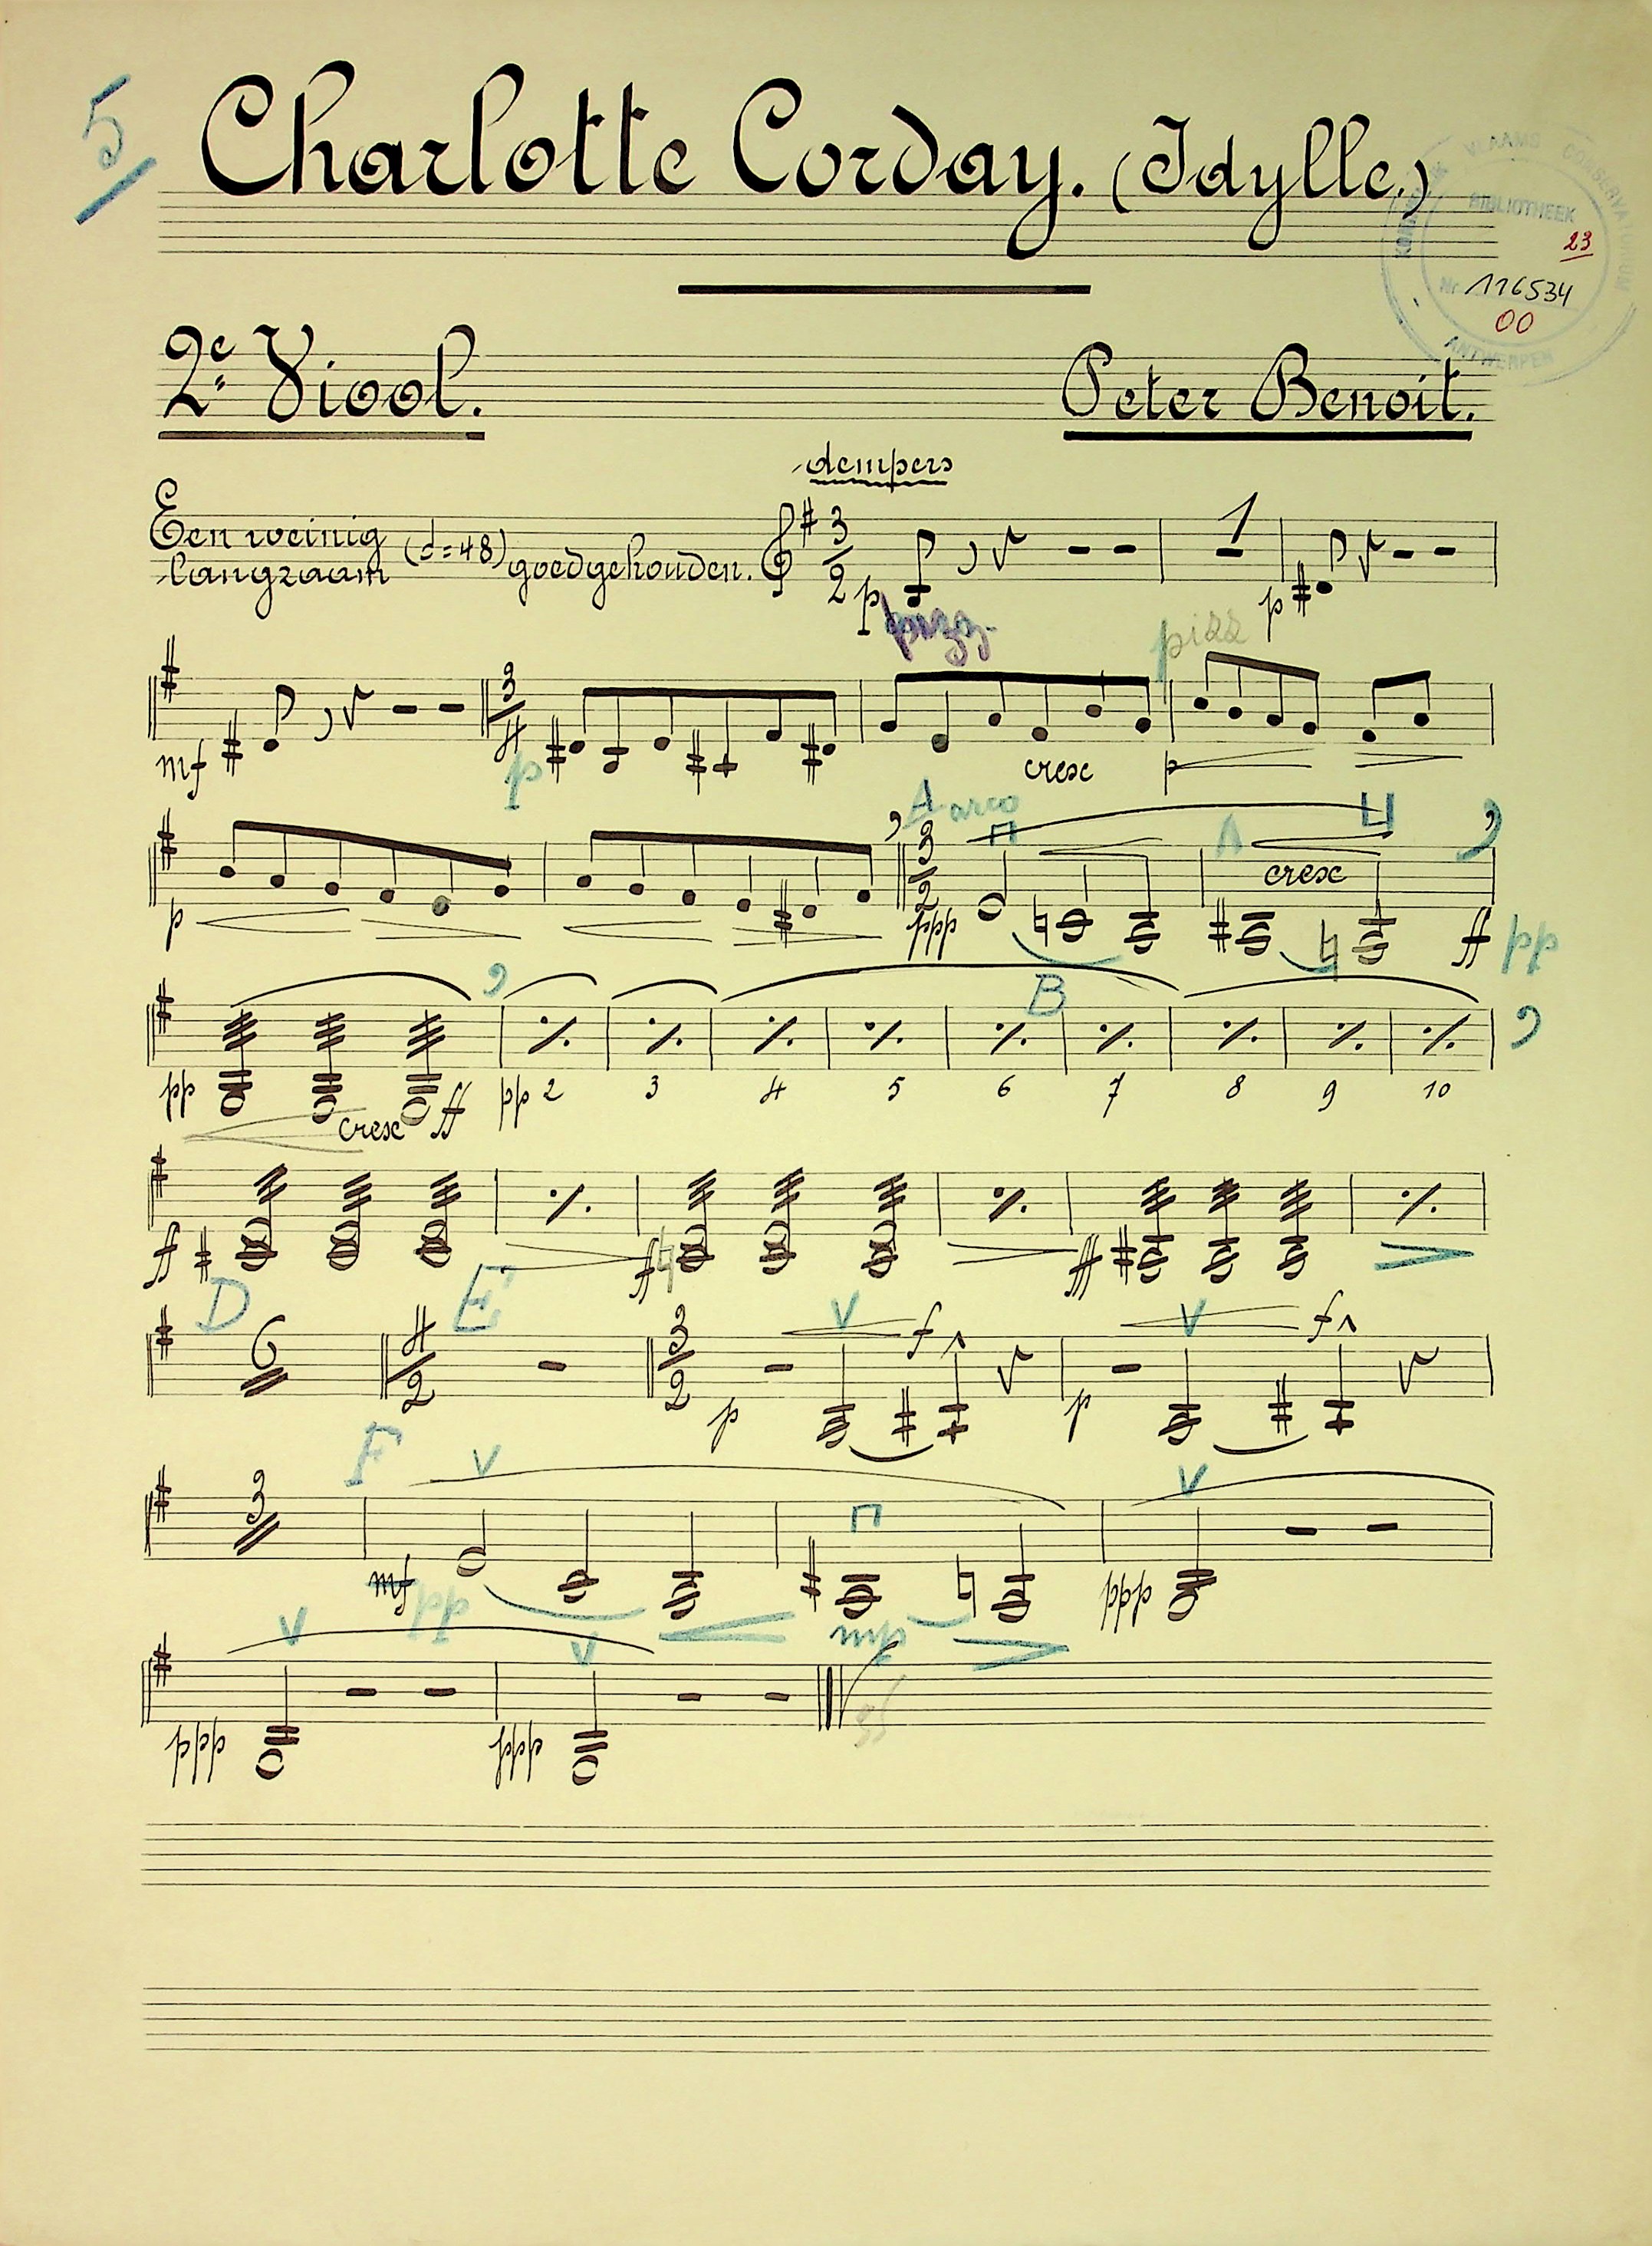 5
Charlotte Corday. (Idylle.)
KONINKLIJK VLAAMS CONSERVATORIUM
BIBLIOTHEEK
23
Nr 116534
00
ANTWERPEN
2e Viool.
Peter Benoit.
dempers
Een weinig langzaam (𝅗𝅥=48) goedgehouden.
3/2 1
p p
pizz. pizz
3/4
mf p cresc p
A arco
3/2 cresc
p ppp ff pp
B
pp cresc ff pp 2 3 4 5 6 7 8 9 10
ff ff fff
D E
6 4/2 3/2 f f
p p
F
3
mf pp mf ppp
ppp ppp